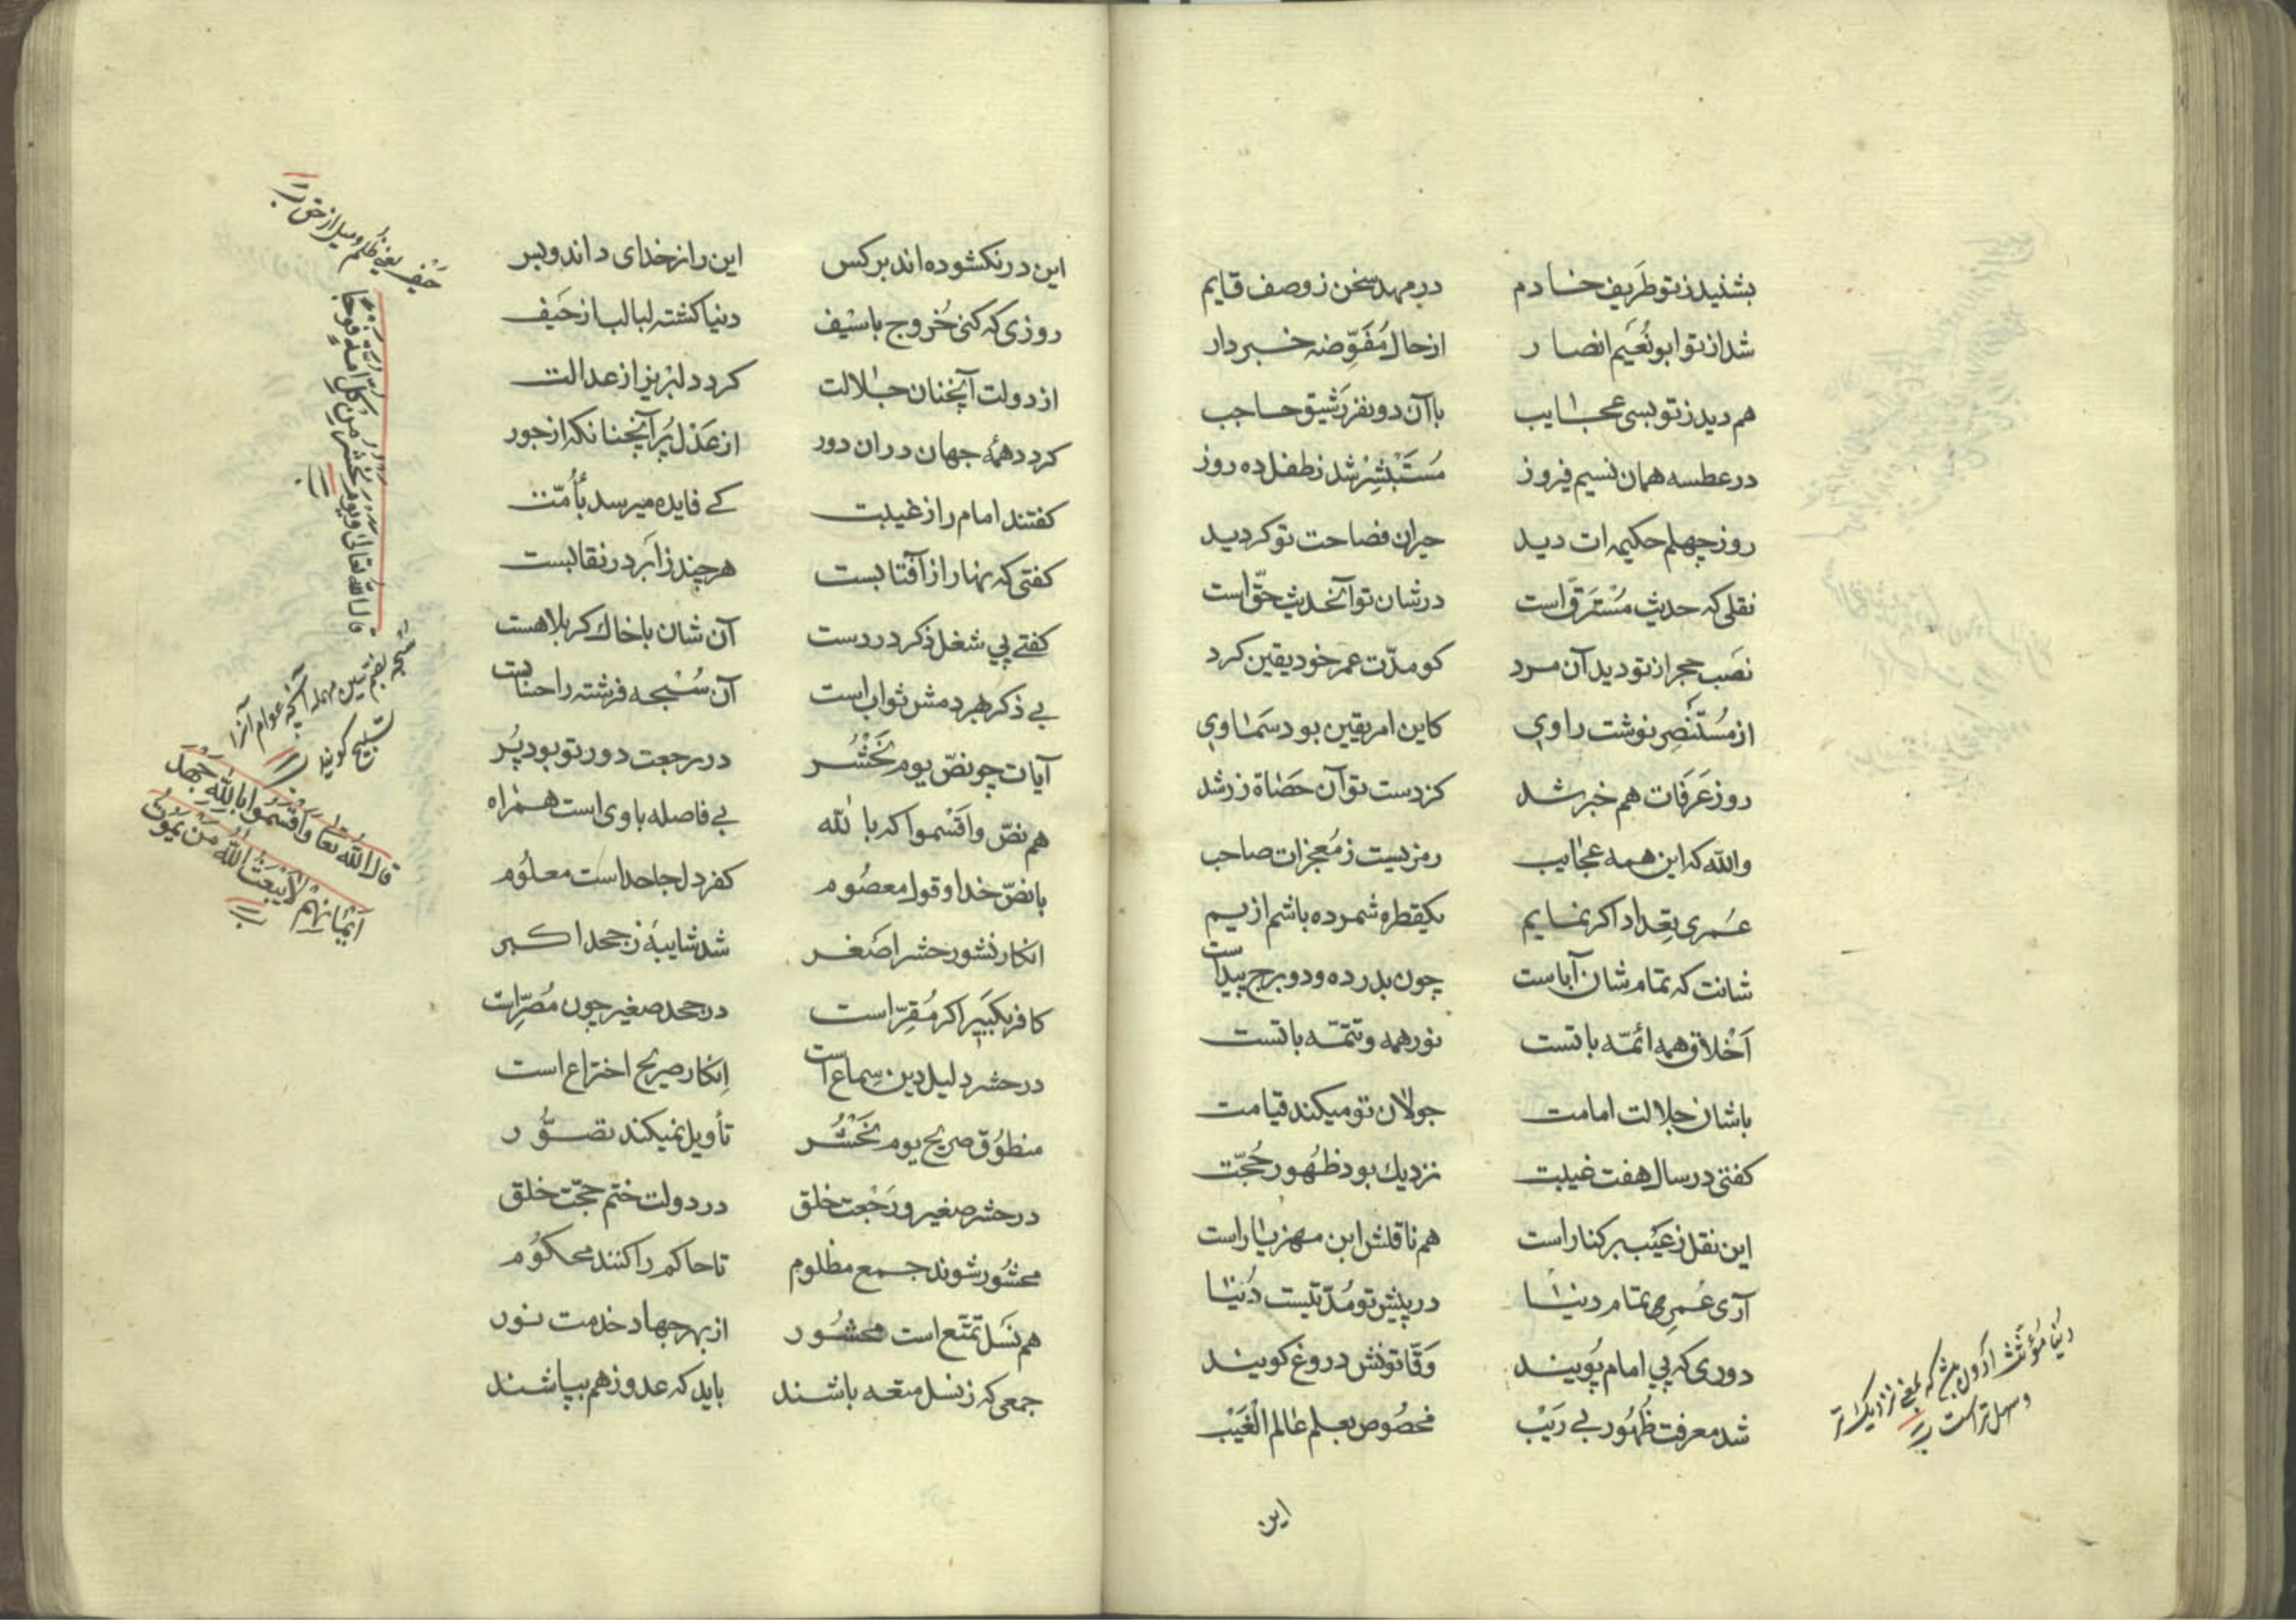 بشنید ز تو طَریف خادم در مهد سخن ز وصف قایم
شد از تو ابونُعَیم انصار از حال مُفَوِّضه خبردار
هم دید ز تو بسی عجایب با آن دو نفر رَشیق حاجب
در عطسه همان نسیم فیروز مُستَبْشِر شد ز طفل ده روز
روز چهلم حکیمه ات دید حیران فصاحت تو کردید
نقلی که حدیث مُسْتَرَق است در شان تو آنحدیث حقّ است
نصَب حجر از تو دید آن مرد کو مدّت عمر خود یقین کرد
از مُستَنصِر نوشت راوی کاین امر یقین بود سَمٰاوی
روز عَرَفات هم خبر شد کز دست تو آن حَصٰاة زر شد
والله که این همه عجٰایب رمزیست ز مُعجزات صاحب
عُمری بِتِعداد اکر نمایم یکقطره شمرده باشم از یم
شانت که تمام شان آباست چون بدر ده و دو برج پیداست
اَخْلاق همه ائمّه با تست نور همه و تتمّه با تست
با شان جلالت امامت جولان تو میکند قیامت
کفتی در سال هفت غیبت نزدیك بود ظهُور حُجّت
این نقل ز عَیْب بر کنار است هم ناقلش ابن مهزیٰار است
آری عُمرِ همه تمام دنیٰا در پیش تو مُدّتیست دُنیٰا
دوری که پی امام پُویند وَقّاتونش دروغ کویند
شد معرفت ظُهُور بی رَیْب مخصُوص بعلم عٰالم الْغَیْب
دُنیا مؤنّث اَدْون بمعنی نزدیکتر
و سهل تر است
این
این در نکشوده اند بر کس این راز خدای داند و بس
روزی که کنی خُروج با سَیْف دنیا کشته لبالب از حَیف
از دولت آنچنان جلالت کردد لبْریز از عدالت
کردد همهٔ جهان دران دور از عَدْل پُر آنچنانکه از جور
کفتند امام را ز غیبت کے فایده میرسد باُمّت
کفتی که نهار از آفتابست هر چند ز اَبر در نقابست
کفتے پی شغل ذکر در دست آن شان با خاك کربلا هست
بے ذکر بهر دمش ثواب است آن سُبْحه فرشته را حسابست
آیات چو نصّ یوم نَحْشُر در رجعت دور تو بود پُر
هم نصّ و اَقْسموا که بالله بے فاصله با وی است همراه
با نصّ خدا و قول معصُوم کفر دل جاحد است معلُوم
انکار نشور حشر اصْغر شد شایبهٔ ز جحد اکبر
کافر بکبیر اکر مُقِرّ است در جحد صغیر چون مُصِرّ است
در حشر دلیل دین سِماع است اِنکار صریح اختراع است
منطُوق صریح یوم نَحْشُر تأویل نمیکند تصوُّر
در حشر صغیر و رَجْعت خلق در دولت ختم حجّت خلق
محشُور شوند جمع مظلوم تا حاکم را کنند محکوُم
هم نَسْل تمتّع است محشُور از بهر جهاد خدمت نور
جمعی که ز نسل متعه باشند باید که عدو ز هم بپاشند
حَیْف یعنی ظُلم و میل از حق
قال الله تعالی و یوم نحشر من کل امة فوجا
سُبحه بضم سین مهمله آنچه عوام آنرا
تسبیح کویند
قال الله تعا وَاَقْسَمُوا بِاللّٰهِ جَهْدَ
اَیْمٰانِهِمْ لاٰیَبْعَثُ اللّٰهُ مَنْ یَمُوتُ